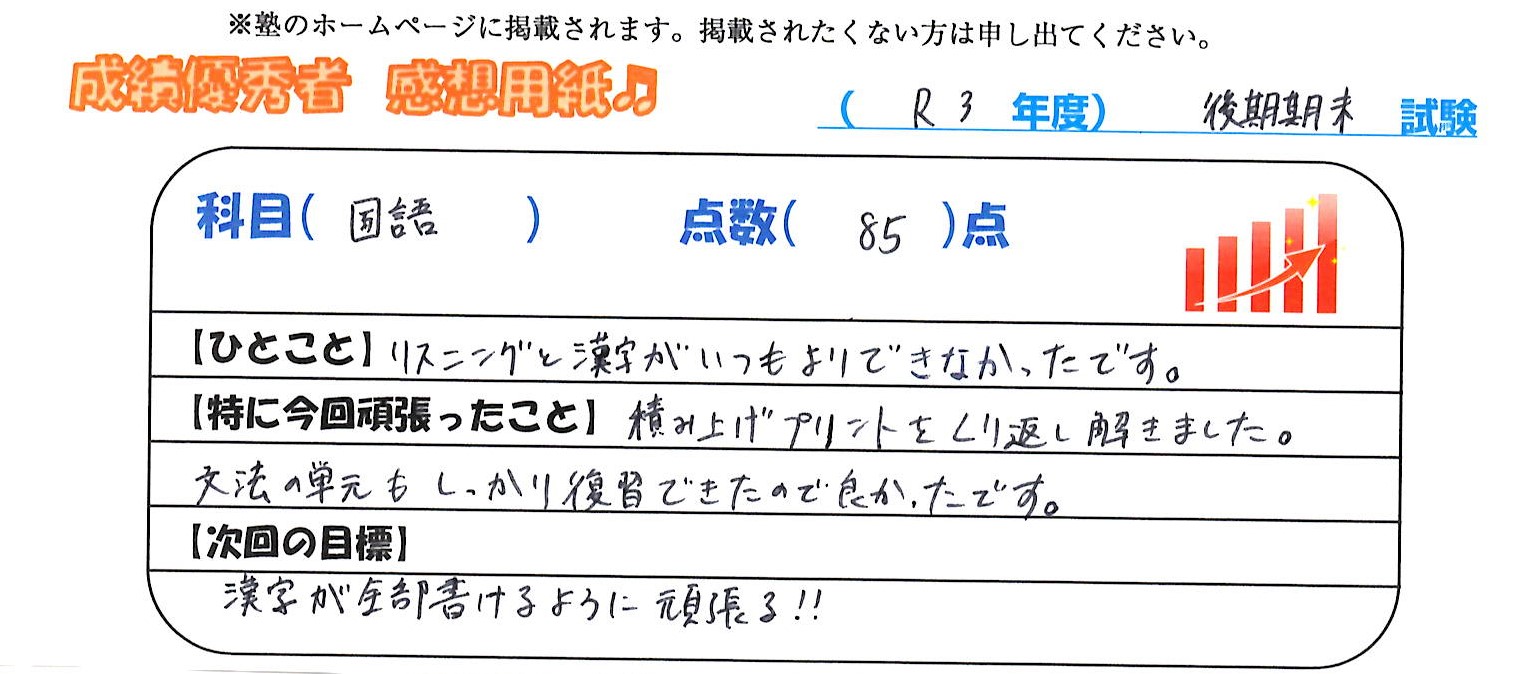 ※塾のホームページに掲載されます。掲載されたくない方は申し出てください。
成績優秀者 感想用紙♫
( R3 年度) 後期期末 試験
科目( 国語 ) 点数( 85 )点
【ひとこと】リスニングと漢字がいつもよりできなかったです。
【特に今回頑張ったこと】積み上げプリントをくり返し解きました。
文法の単元もしっかり復習できたので良かったです。
【次回の目標】
漢字が全部書けるように頑張る!!